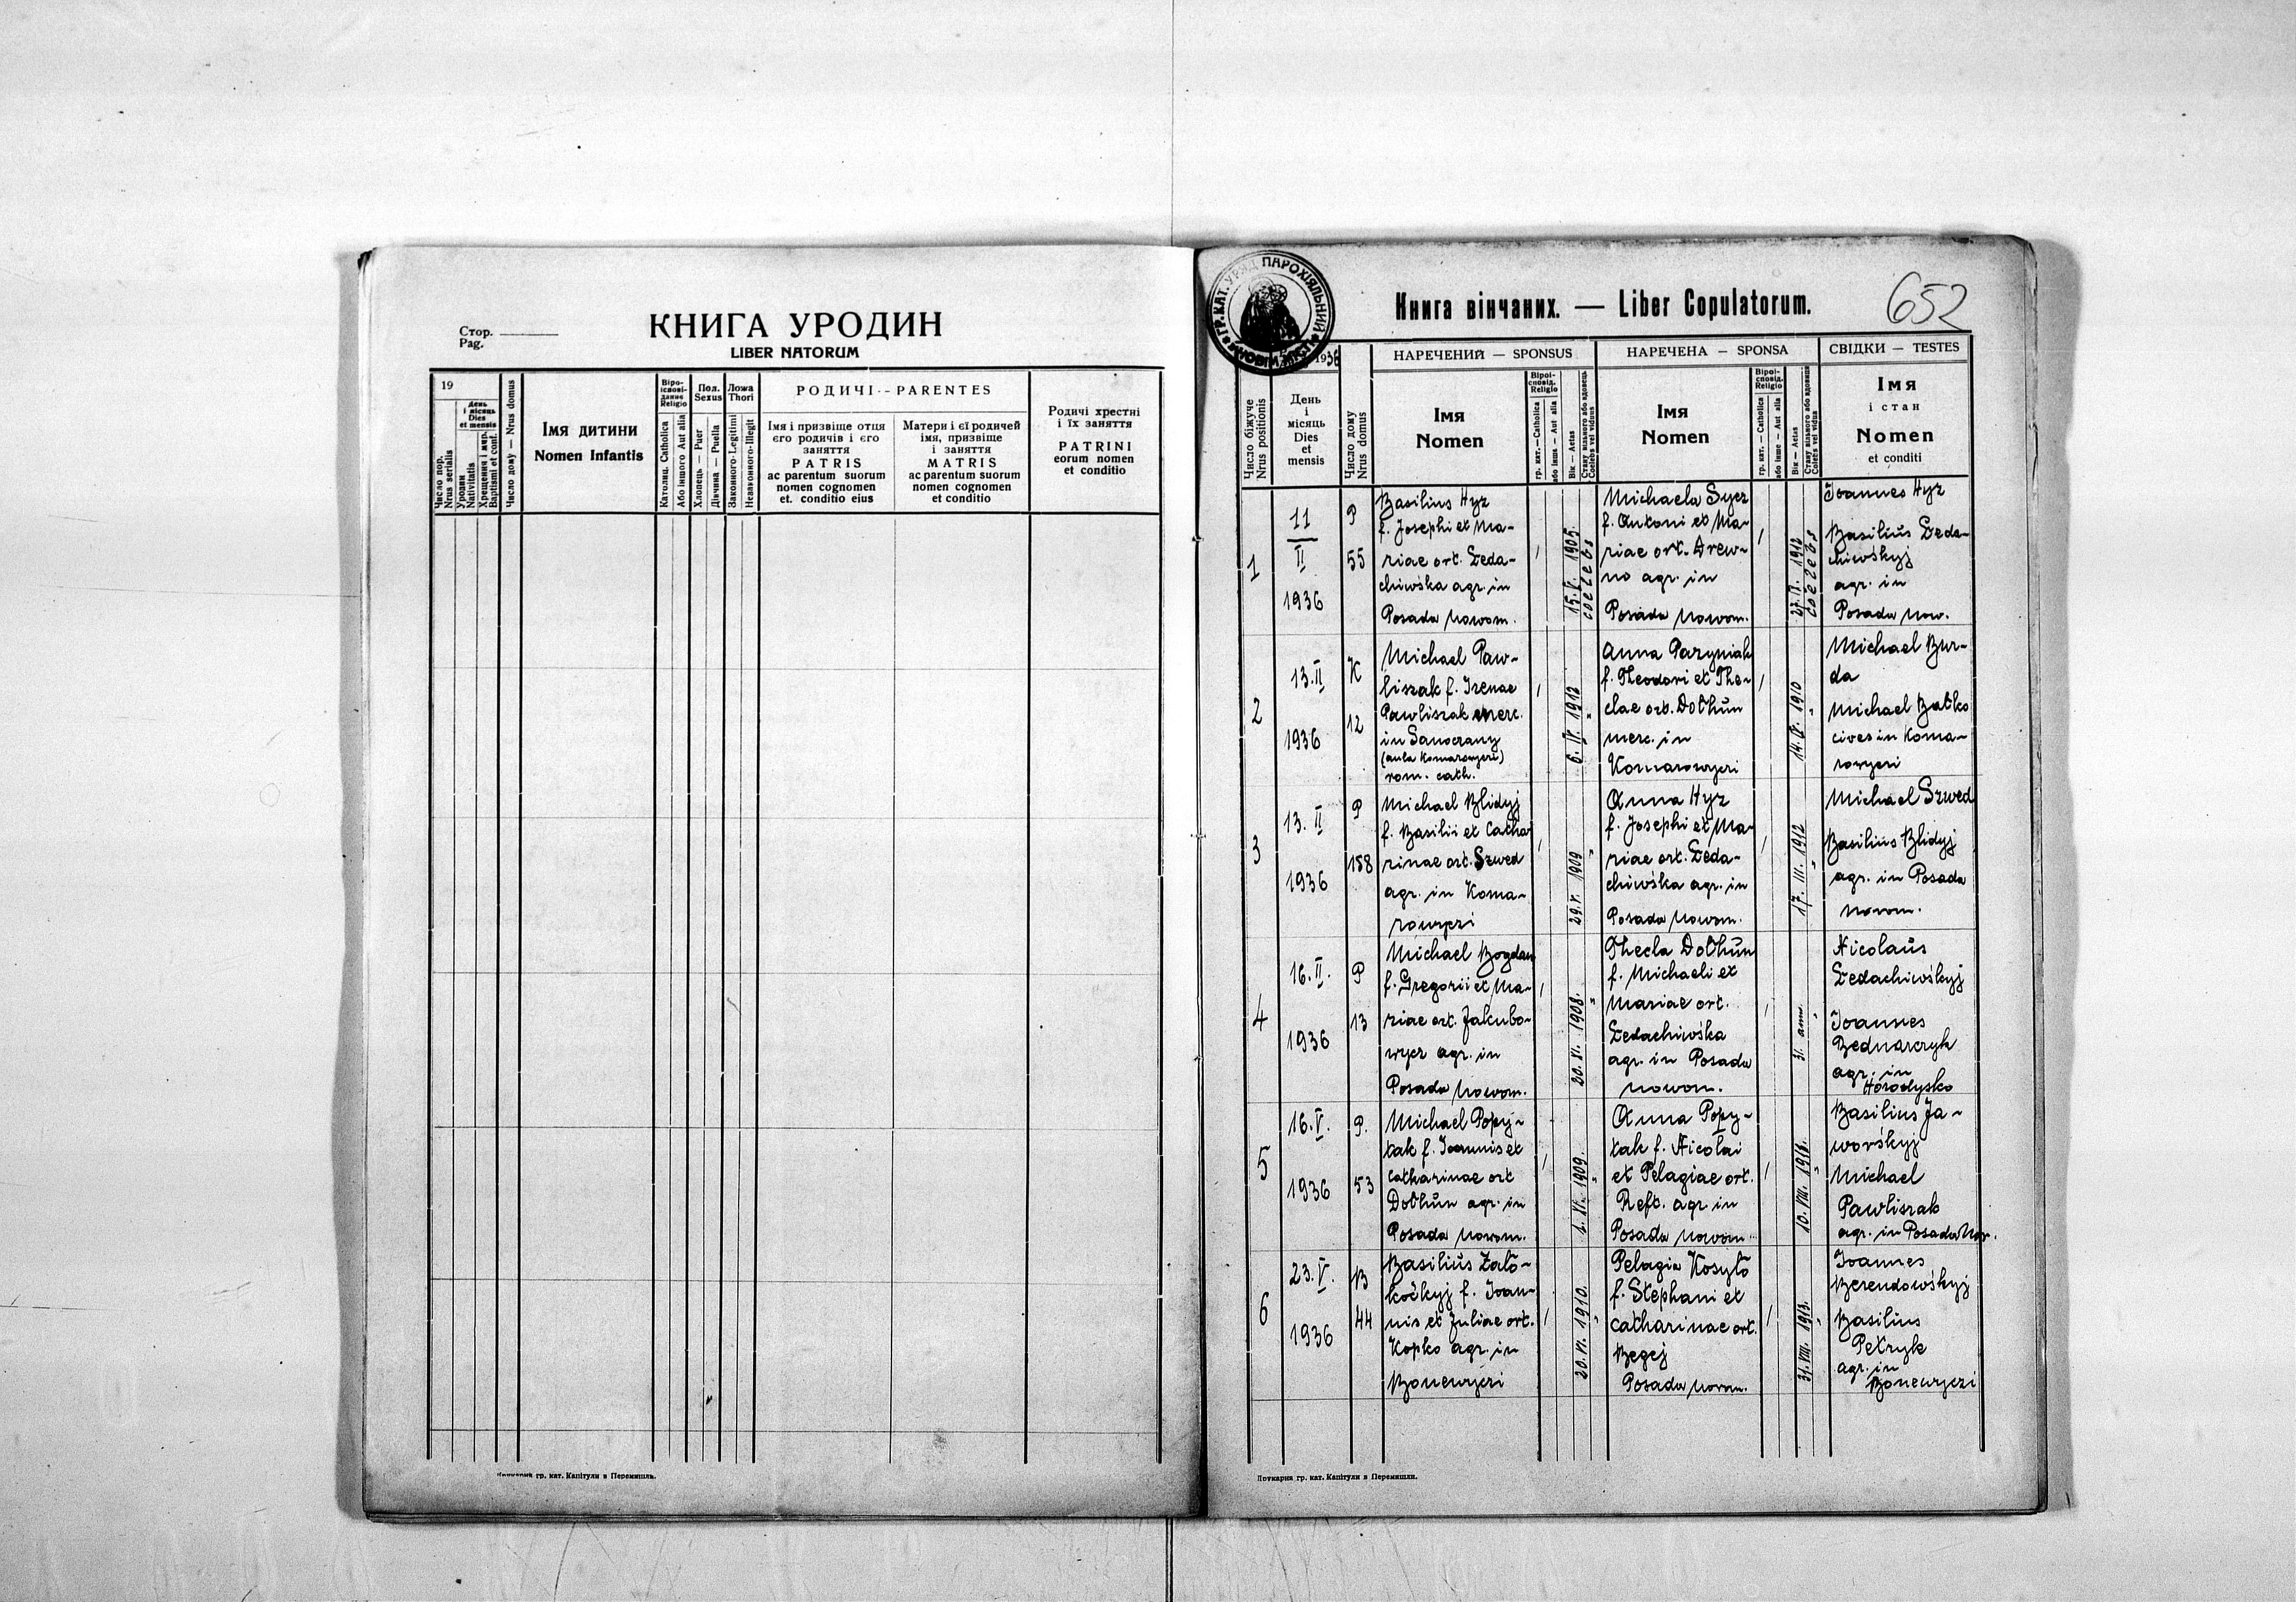 Стор.
Pag.
КНИГА УРОДИН
LIBER NATORUM
19
День
і місяць
Dies
et mensis
Число пор.
Nrus serialis
Уродин
Nativitatis
Хрещення і мир.
Baptismi et conf.
Число дому — Nrus domus
Імя дитини
Nomen Infantis
Віро-
ісповi-
дання
Religio
Католиц. Catholica
Або іншого Aut alia
Пол.
Sexus
Хлопець — Puer
Дівчина — Puella
Ложа
Thori
Законного-Legitimi
Незаконного-Illegit
РОДИЧІ - PARENTES
Імя і призвіще отця
єго родичів і єго
заняття
PATRIS
ac parentum suorum
nomen cognomen
et. conditio eius
Матери і єї родичей
імя, призвіще
і заняття
MATRIS
ac parentum suorum
nomen cognomen
et conditio
Родичі хрестні
і їх заняття
PATRINI
eorum nomen
et conditio
Друкарня гр. кат. Капітули в Перемишль.
ГР. КАТ. УРЯД ПАРОХІЯЛЬНИЙ
Книга вінчаних. — Liber Copulatorum.
652
1936
НАРЕЧЕНИЙ — SPONSUS
НАРЕЧЕНА — SPONSA
СВІДКИ — TESTES
Число біжуче
Nrus positionis
День
і
місяць
Dies
et
mensis
Число дому
Nrus domus
Імя
Nomen
Віроі-
сповід.
Religio
гр. кат. — Catholica
або інше — Aut alia
Вік — Aetas
Стану вільного або вдовець
Coelebs vel viduus
Імя
Nomen
Віроі-
сповід.
Religio
гр. кат. — Catholica
або інше — Aut alia
Вік — Aetas
Стану вільного або вдовиця
Імя
і стан
Nomen
et conditi
1
11
II
1936
P
55
Basilius Hyz
f. Josephi et Ma-
riae ort. Łeda-
chiwśka agr. in
Posada Nowom.
15.V. 1905.
coelebs
Michaela Sycz
f. Antoni et Ma-
riae ort. Drew-
no agr. in
Posada Nowom.
27.IX. 1912
coelebs
Joannes Hyz
Basilius Łeda-
chiwśkyj
agr. in
Posada Now.
2
13.II
1936
K
12
Michael Paw-
liszak f. Irenae
Pawliszak merc.
in Sanoczany
(aula Komarowyczi)
rom. cath.
6. IV. 1912
"
Anna Paryniak
f. Theodori et The-
clae ort. Dołhun
merc. in
Komarowyczi
14. IX. 1910
"
Michael Bur-
da
Michael Batko
cives in Koma-
rowyczi
3
13. II
1936
P
158
Michael Blidyj
f. Basilii et Catha
rinae ort. Szwed
agr. in Koma-
rowyczi
29.V. 1909
"
Anna Hyz
f. Josephi et Ma-
riae ort. Łeda-
chiwśka agr. in
Posada Nowom.
17. III. 1912
"
Michael Szwed
Basilius Blidyj
agr. in Posada
Nowom.
4
16.II.
1936
P
13
Michael Bogdan
f. Gregorii et Ma-
riae ort. Jakubo-
wycz agr. in
Posada Nowom.
20. XI. 1908.
"
Thecla Dołhun
f. Michaeli et
Mariae ort.
Łedachiwśka
agr. in Posada
Nowom.
31. ann.
"
Nicolaus
Łedachiwśkyj
Joannes
Bednarczyk
agr. in
Horodysko
5
16.V.
1936
P.
53
Michael Popy-
tak f. Joannis et
Catharinae ort
Dołhun agr. in
Posada Nowom.
1. XI. 1909.
"
Anna Popy-
tak f. Nicolai
et Pelagiae ort.
Reft. agr. in
Posada Nowom.
"
Basilius Ja-
worśkyj
Michael
Pawliszak
agr. in Posada Now.
6
23.V.
1936
B
44
Basilius Zało-
koćkyj f. Joan-
nis et Juliae ort.
Kopko agr. in
Bonewyczi
20. VI. 1910.
"
Pelagia Kosyło
f. Stephani et
Catharinae ort.
Begej
Posada Nowom.
31. VIII. 1913.
"
Joannes
Berendowśkyj
Basilius
Petryk
agr. in
Bonewyczi
Друкарня гр. кат. Капітули в Перемишли.